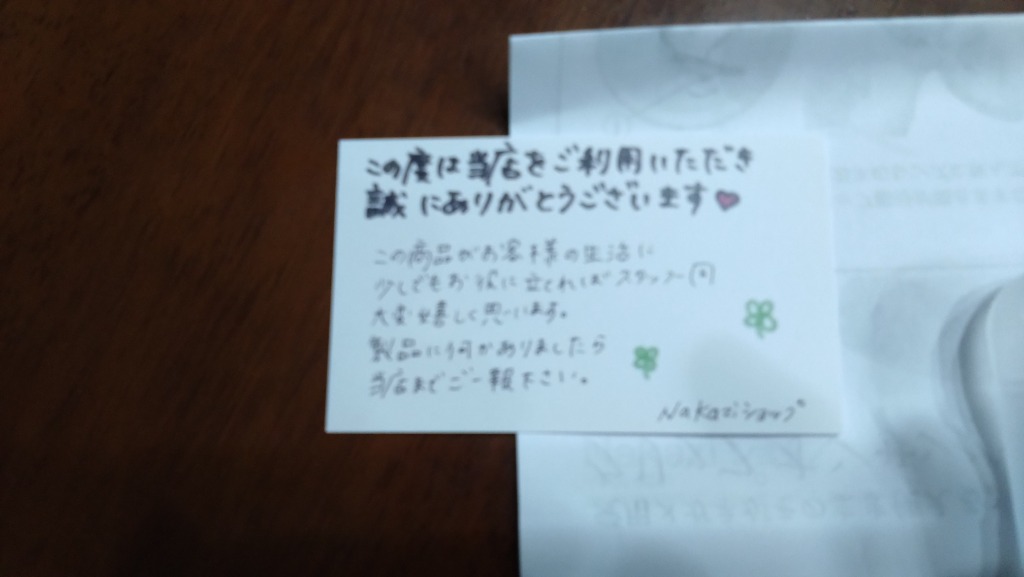 この度は当店をご利用いただき
誠にありがとうございます
この商品がお客様の生活に
少しでもお役に立てればスタッフ一同
大変嬉しく思います。
製品に何かありましたら
当店までご一報下さい。
Nakaziショップ